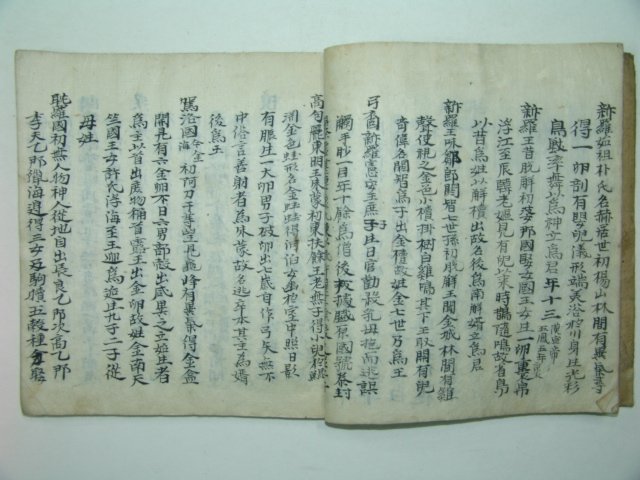 新羅始祖朴氏名赫居世初楊山林間有異氣尋
得一卵剖有嬰兒儀形端美浴於川身生光彩
鳥獸率舞以為神立為君年十三
新羅王昔脫解初 那國娶女國王女生一卵 帛
浮江至辰韓老嫗見有兒以來時鵲隨鳴故省鳥
以昔為姓以解櫝出故名後為南解婿立為君
新羅王味鄒郎閼智七世孫初脫解王聞金城林間有雞
聲使視之金色小櫝掛樹白雞鳴其下王取開有兒
奇偉名閼智為子出金櫝故姓金七世乃為王
弓裔新羅憲安王庶子生日官勸殺乳母抱而逃誤
觸手眇一目年十餘為僧後 國號泰封
高句麗東明王朱蒙初東扶餘王老無子得小兒
金色蛙形名金蛙蛙得河泊女幽於室中照日影
有娠生一大卵男子破卵出七歲自作弓矢無不
中俗言善射者為朱蒙故名逃卒本其主為婿
後為王
駕洛國 初阿刀干等望龜峰有異氣得金盒
開見有六金卵不日六男部殼出咸異之立姓者
為主以首出庶物稱首露王出金卵故姓金南天
竺國王女許氏浮海至王迎為 生九子二子從
母姓
耽羅國初無人物神人從地自出長良乙那次高乙那
季夫乙那傍海邊得三女及駒犢五穀種